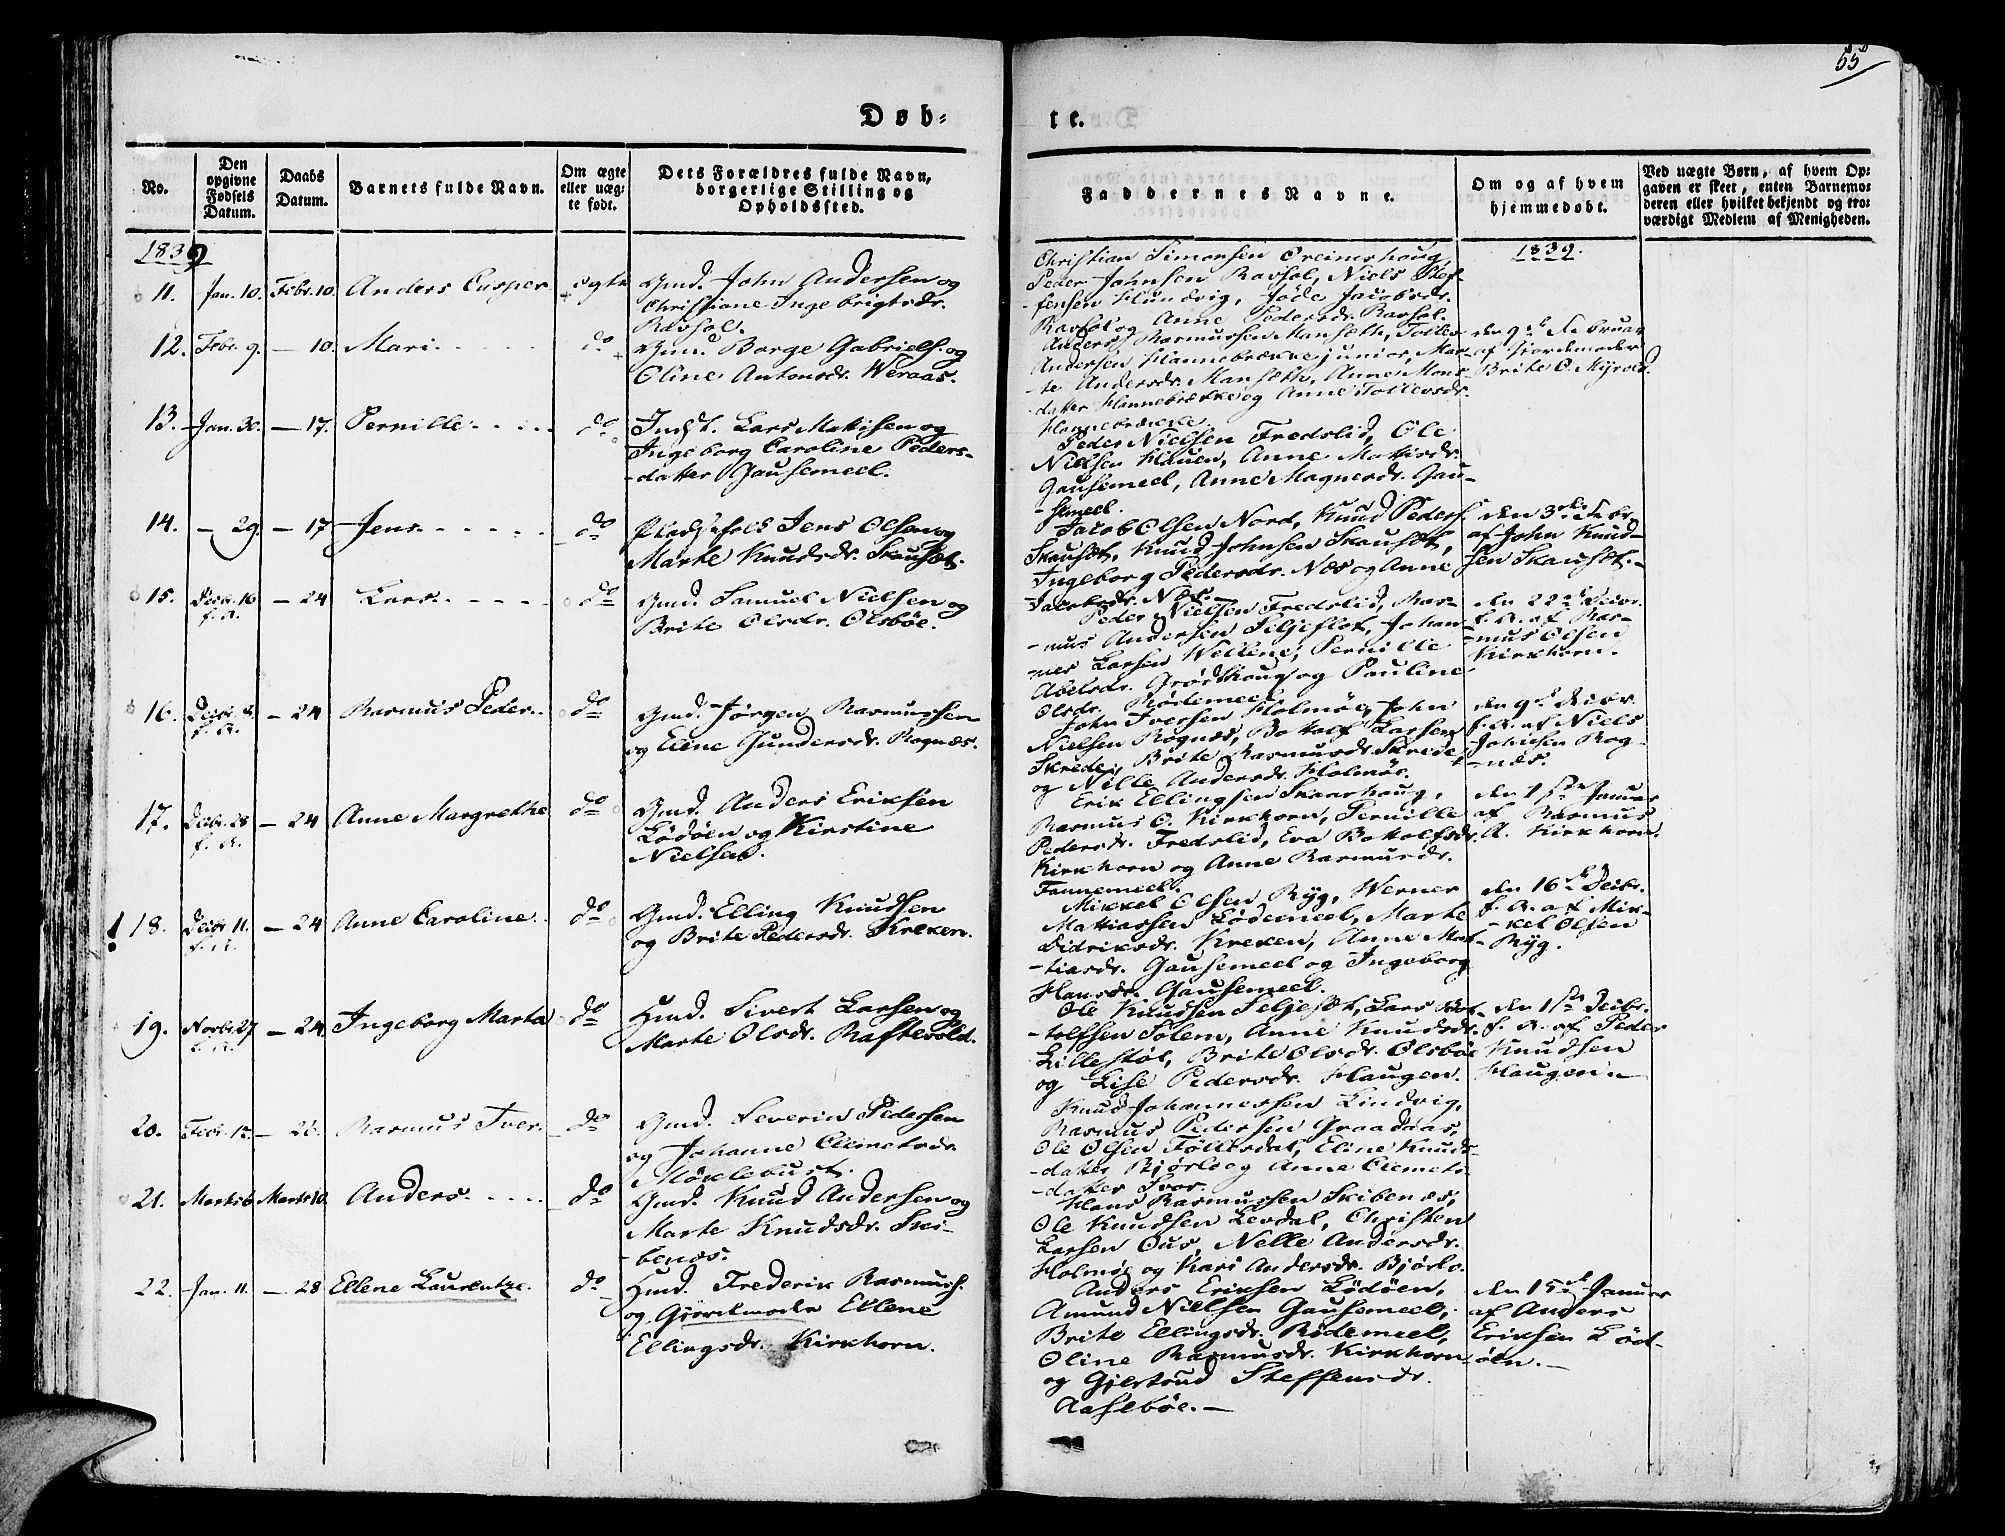 55
Døb-
te.
No.
Den opgivne Fødsels Datum.
Daabs Datum.
Barnets fulde Navn.
Om ægte eller uæg- te født.
Dets Forældres fulde Navn, borgerlige Stilling og Opholdssted.
Faddernes Navne.
Om og af hvem hjemmedøbt.
Ved uægte Børn, af hvem Op- gaven er skeet, enten Barnemo- deren eller hvilket bekjendt og tro- værdigt Medlem af Menigheden.
1839
1839.
11. Jan. 10. Febr. 10. Anders Casper ægte Gmd. John Andersen og
Christiane Ingebrigtsdr.
Ravsol.
Christian Simonsen Oreimshoug,
Peder Johnsen Ravsol, Niels Stef-
fensen Hundvig, Jøde Jacobsdr.
Ravsol og Anne Pedersdr. Ravsol.
12. Febr. 9. — 10. Mari. do Gmd. Borge Gabriels. og
Oline Antonsdr. Weraas.
Anders Rasmussen Mansæth, Tolles
Andersen Hannebrække junior, Mar-
te Andersdr. Mansæth, Anne Mons-
datter Hannebrække og Anne Tollevsdr.
Hannebrække.
den 9de Februar
af Gjordemoder
Brite O. Myrold.
13. Jan. 30. — 17. Pernille do Indst. Lars Matisen og
Ingeborg Caroline Peders-
datter Gausemeel.
Peder Nielsen Fredslid, Ole
Nielsen Hauen, Anne Mattisdr.
Gausemeel, Anne Magnesdr. Gau-
semeel.
14. — 29. — 17 Jens do Pladsefolk Jens Olsen og
Marte Knudsdr. Skauset.
Jacob Olsen Nord, Knud Peders.
Skauset, Knud Johnsen Skauset,
Ingeborg Pedersdr. Næs og Anne
Jacobsdr. Næs.
den 3die Febr.
af John Knud-
sen Skauset.
15. Decbr. 16 f. A. — 24 Lars do Gmd. Samuel Nielsen og
Brite Olsdr. Olsbøe.
Peder Nielsen Fredslid, Ras-
mus Andersen Seljeflot, Johan-
nes Larsen Welline, Pernille
Abelsdr. Grødhoug og Pauline
Olsdr. Rødemeel.
den 22de Decbr.
f. A. af Ras-
mus Olsen
Kirkhorn.
16. Decbr. 8. f. A. — 24 Rasmus Peder do Gmd. Jørgen Rasmussen
og Eline Gundersdr. Rognæs.
John Iversen Holmøe, John
Nielsen Rognæs, Bottolf Larsen
Skrede, Brite Rasmusdr. Skrede,
og Nille Andersdr. Holmøe.
den 9de Decbr.
f. A. af Niels
Johnsen Rog-
næs.
17. Decbr. 28 f. A. — 24 Anne Margrethe do Gmd. Anders Eriksen
Lødøen og Kirstine
Nielsen.
Erik Ellingsen Skaarhoug,
Rasmus O. Kirkhorn, Pernille
Pedersdr. Fredslid, Eva Bottolfsdr.
Kirkhorn og Anne Rasmusdr.
Fannemeel.
den 1ste Januar
af Rasmus
A. Kirkhorn.
18. Decbr. 11. f. A. — 24 Anne Caroline do Gmd. Elling Knudsen
og Brite Pedersdr. Kreken.
Mikkel Olsen Ryg, Werner
Mattiassen Lødemeel, Marte
Didriksdr. Kreken, Anne Mat-
tiasdr. Gausemeel og Ingeborg
Hansdr. Gausemeel.
den 16de Decbr.
f. A. af Mik-
kel Olsen
Ryg.
19. Novbr. 27 f. A. — 24. Ingeborg Marta do Hmd. Sivert Larsen og
Marte Olsdr. Raftevold.
Ole Knudsen Seljeset, Lars Bot-
tolfsen Solem, Anne Knudsdr.
Lillestøl, Brite Olsdr. Olsbøe
og Lise Pedersdr. Haugen.
den 1ste Decbr.
f. A. af Peder
Knudsen
Haugen.
20. Febr. 12. — 26. Rasmus Iver do Gmd. Severin Pedersen
og Johanne Clemetsdr.
Møklebust.
Knud Johannessen Lindvig,
Rasmus Pedersen Graadaas,
Ole Olsen Follesdal, Eline Knuds-
datter Bjørlo og Anne Clemets-
datter Svor.
21. Marts 6 Marts 10. Anders do Gmd. Knud Andersen og
Marte Knudsdr. Ski-
benæs.
Hans Rasmussen Skibenæs,
Ole Knudsen Levdal, Christen
Larsen Ous, Nelle Andersdr.
Holmøe og Kari Andersdr. Bjørlo.
22. Jan. 11. — 28 Ellene Laurentze. do Hmd. Frederik Rasmuss.
og Gjordmoder Ellene
Ellingsdr. Kirkhorn.
Anders Eriksen Lødøen,
Amund Nielsen Gausemeel,
Brite Ellingsdr. Rødemeel,
Oline Rasmusdr. Kirkhorn
og Gjertrud Steffensdr.
Aaselbøe.
den 15de Januar
af Anders
Eriksen Lød-
øen.